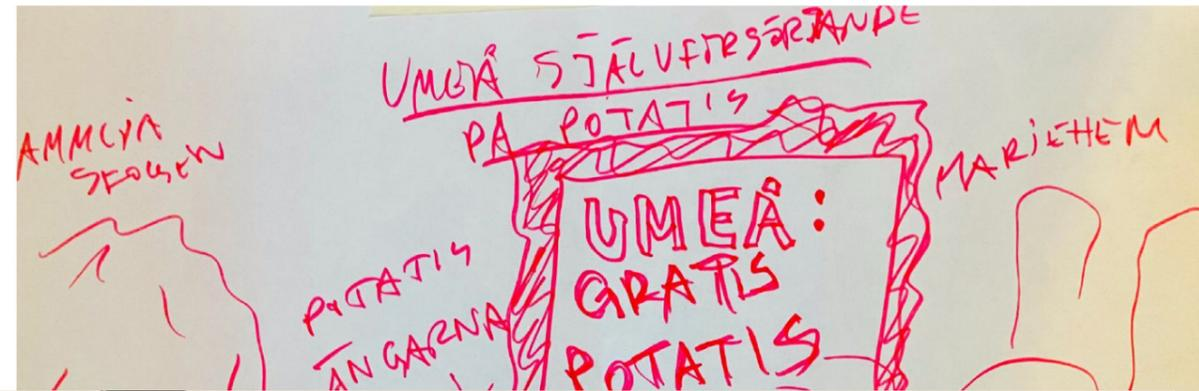 UMEÅ SJÄLVFÖRSÖRJANDE
PÅ POTATIS
MARIEHEM
POTATIS
ÄNGARNA
UMEÅ:
GRATIS
POTATIS